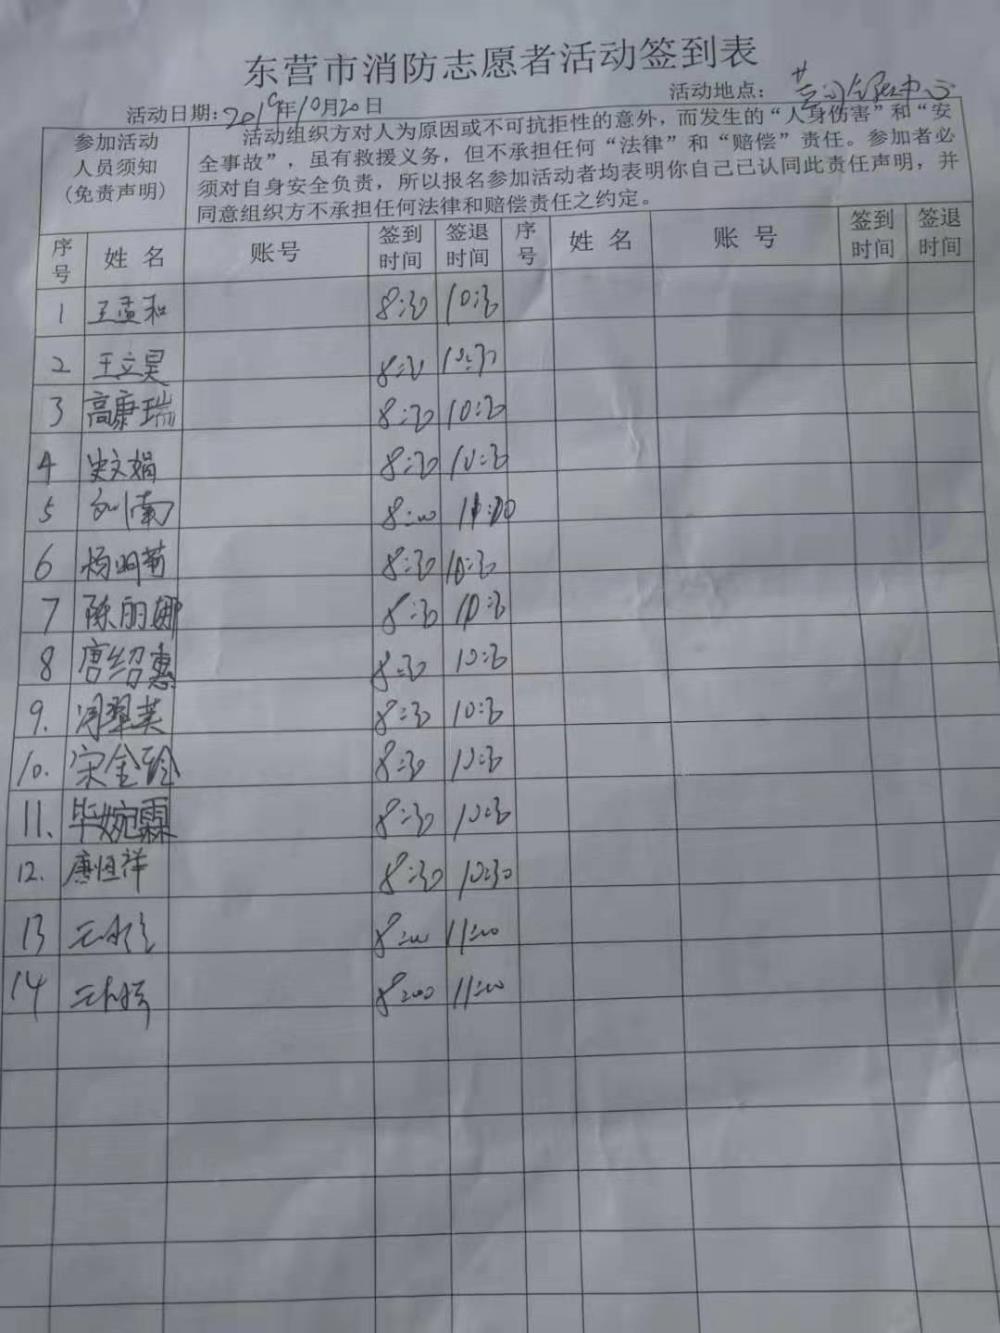 东营市消防志愿者活动签到表
活动日期:2019年10月20日 活动地点:
参加活动
人员须知
(免责声明)
活动组织方对人为原因或不可抗拒性的意外，而发生的“人身伤害”和“安
全事故”，虽有救援义务，但不承担任何“法律”和“赔偿”责任。参加者必
须对自身安全负责，所以报名参加活动者均表明你自己已认同此责任声明，并
同意组织方不承担任何法律和赔偿责任之约定。
序号 姓名 账号 签到时间 签退时间 序号 姓名 账号 签到时间 签退时间
1 王孟和 8:30 10:30
2 王立昊 8:30 10:30
3 高康瑞 8:30 10:30
4 史文娟 8:30 10:30
5 刘南 8:00 11:00
6 杨明菊 8:30 10:30
7 陈丽娜 8:30 10:30
8 唐绍惠 8:30 10:30
9. 周翠英 8:30 10:30
10. 宋金玲 8:30 10:30
11. 毕婉霖 8:30 10:30
12. 唐恒祥 8:30 10:30
13 8:00 11:00
14 8:00 11:00